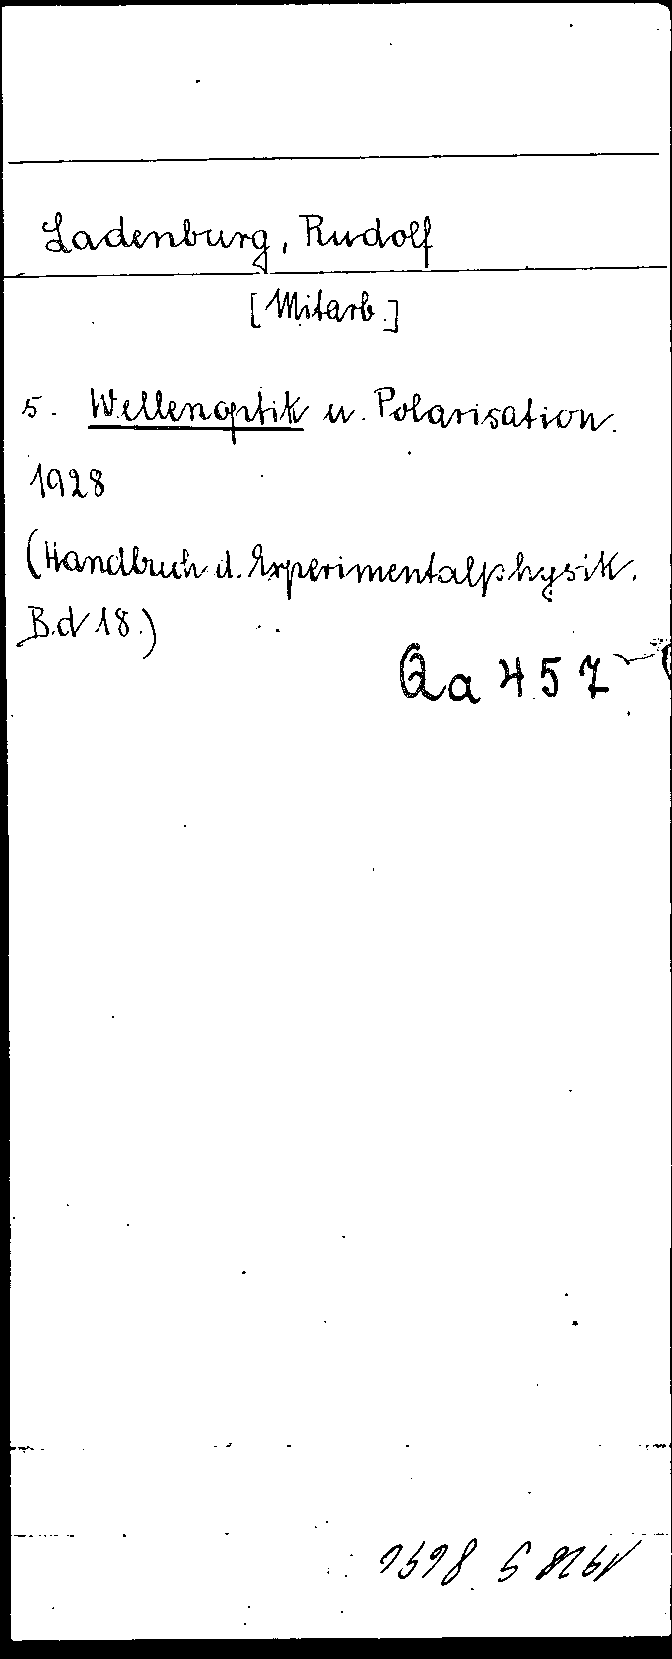 Ladenburg, Rudolf
[Mitarb.]
5. Wellenoptik u. Polarisation.
1928
(Handbuch d. Experimentalphysik.
Bd 18.)
Qa 457
1928 5